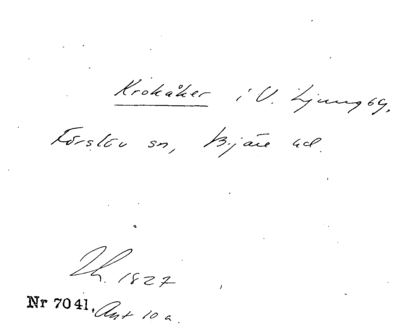 Krokåker i V. Ljungby,
Förslöv sn, Bjäre hd.
Th. 1827
Nr 7041. Ant 10 a.